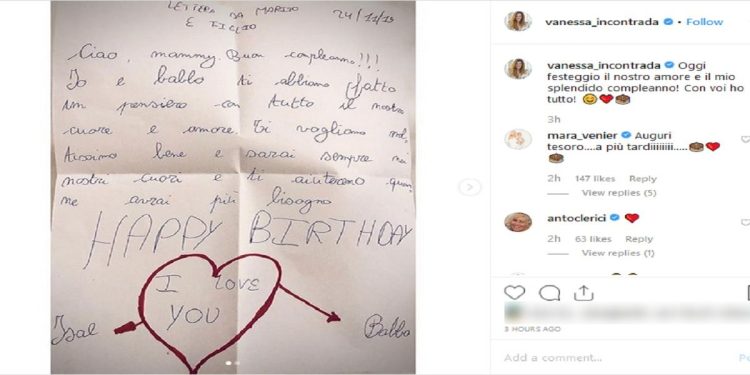 LETTERA DA MARITO
E FIGLIO
24/11/19
Ciao, mammy. Buon compleanno!!!
Io e babbo ti abbiamo fatto
un pensiero con tutto il nostro
cuore e amore. Ti vogliamo mol
tissimo bene e sarai sempre nei
nostri cuori e ti aiuteremo quan
ne avrai più bisogno
HAPPY BIRTHDAY
I LOVE
YOU
Isal
Babbo
vanessa_incontrada • Follow
vanessa_incontrada Oggi
festeggio il nostro amore e il mio
splendido compleanno! Con voi ho
tutto! 😊❤️🎂
3h
mara_venier Auguri
tesoro....a più tardiiiiiiii.....🎂❤️
🎂
2h 147 likes Reply
View replies (5)
antoclerici ❤️
2h 63 likes Reply
View replies (1)
3 HOURS AGO
Add a comment...